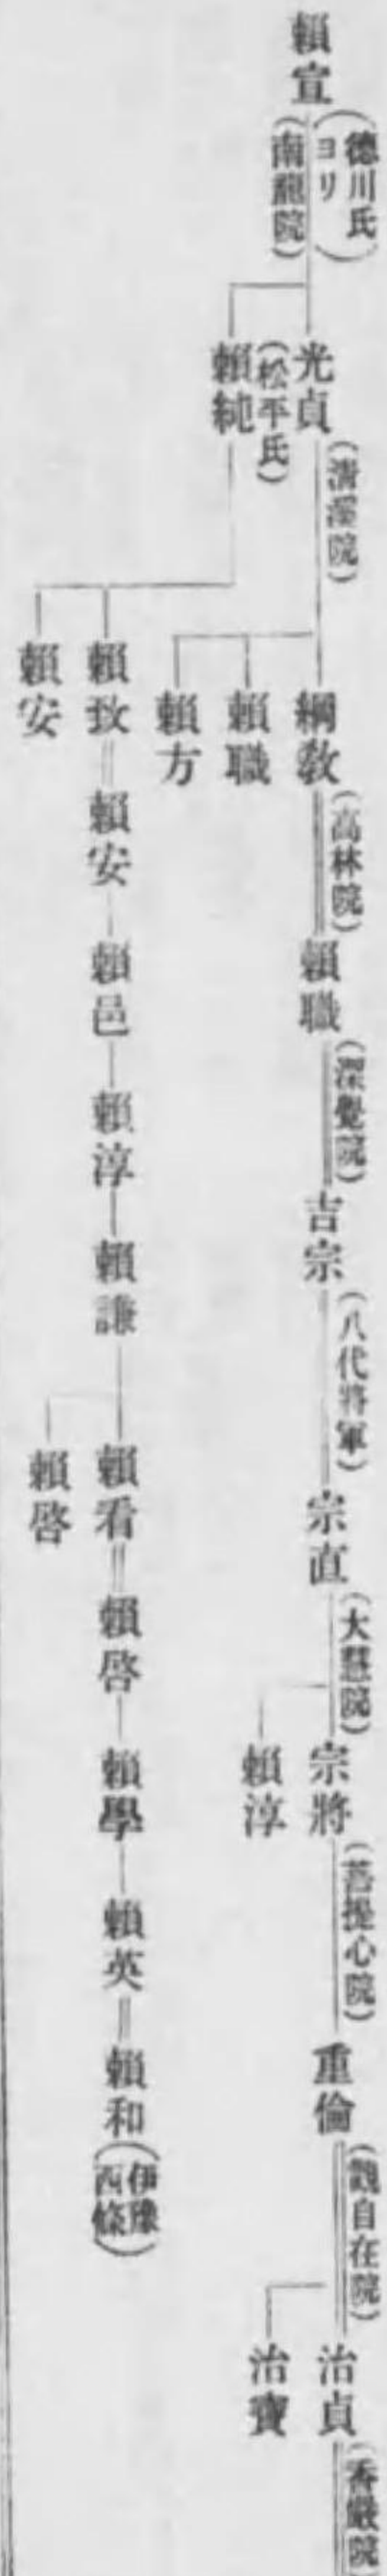 賴宣
(德川氏
ヨリ)
(南龍院)
光貞
(清溪院)
賴純
(松平氏)
綱教
(高林院)
賴職
賴方
賴職
(深覺院)
吉宗
(八代將軍)
宗直
(大慧院)
宗將
(菩提心院)
賴淳
重倫
(觀自在院)
治貞
(香嚴院
治寶
賴致
賴安
賴安
賴邑
賴淳
賴謙
賴看
賴啓
賴啓
賴學
賴英
賴和
(伊豫
西條)